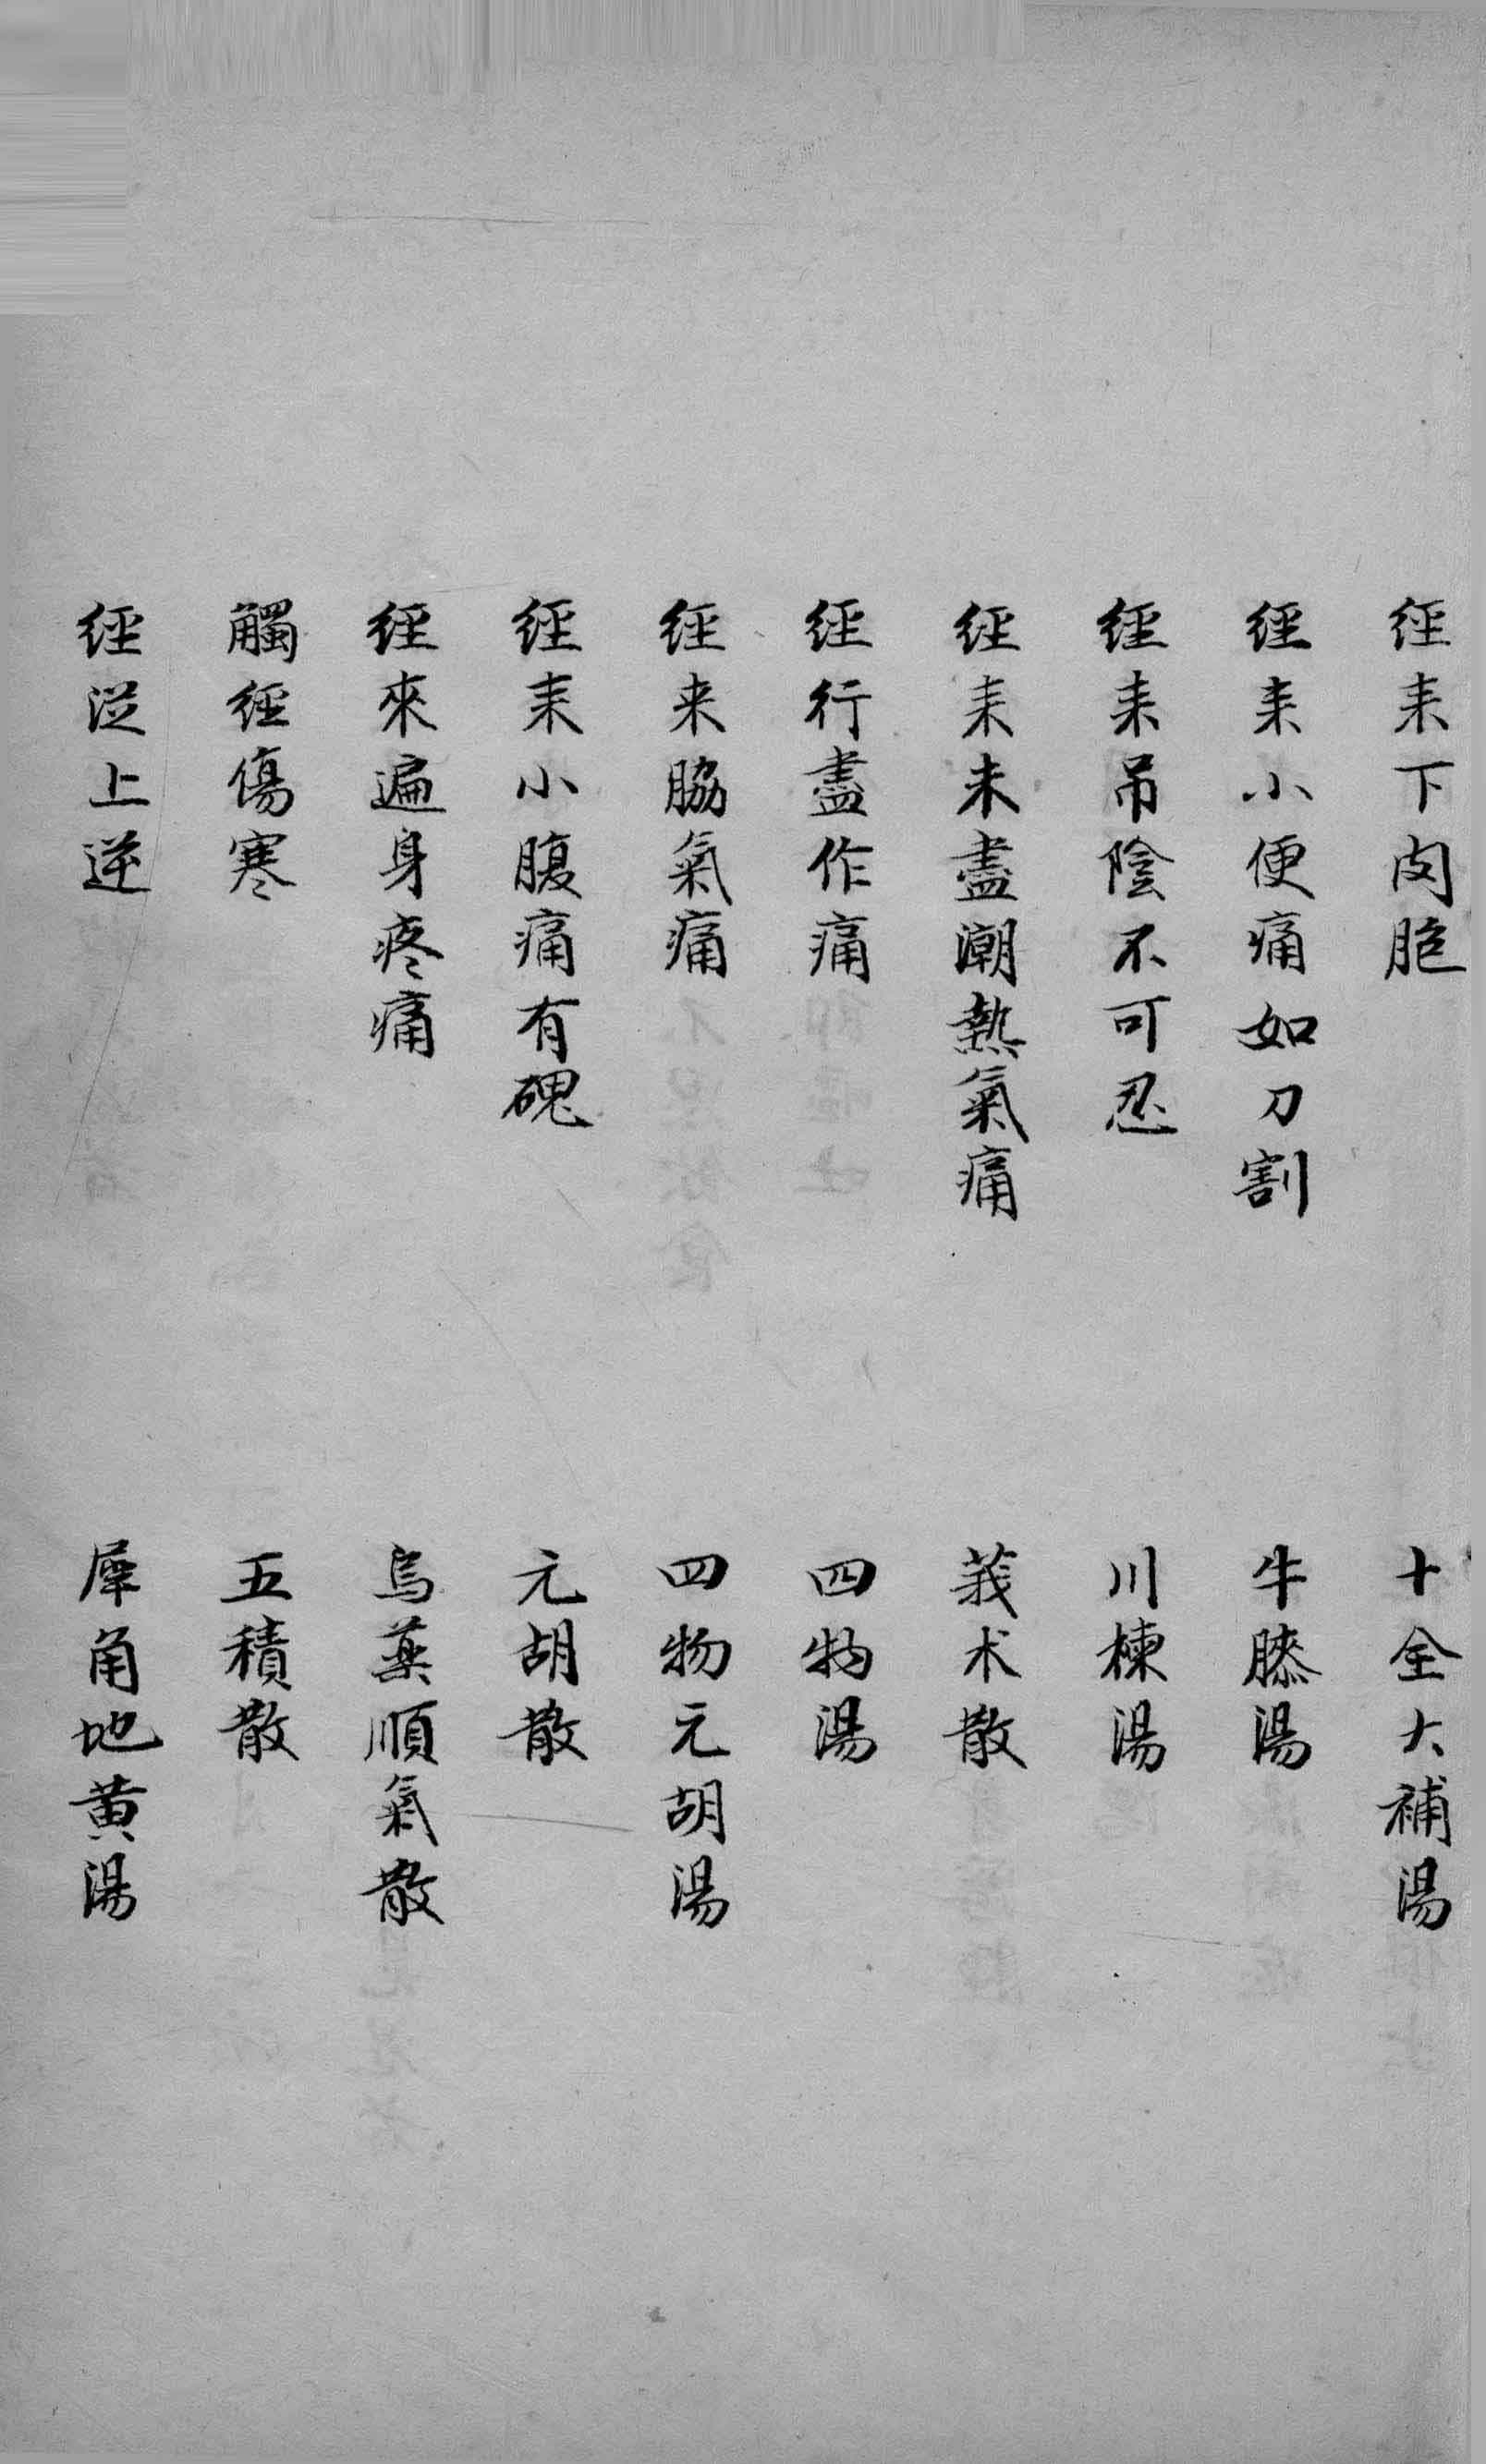 經来下肉胞 十全大補湯
經来小便痛如刀割 牛膝湯
經来吊陰不可忍 川楝湯
經来未盡潮熱氣痛 莪术散
經行盡作痛 四物湯
經来脇氣痛 四物元胡湯
經来小腹痛有磈 元胡散
經來遍身疼痛 烏藥順氣散
觸經傷寒 五積散
經從上逆 犀角地黃湯